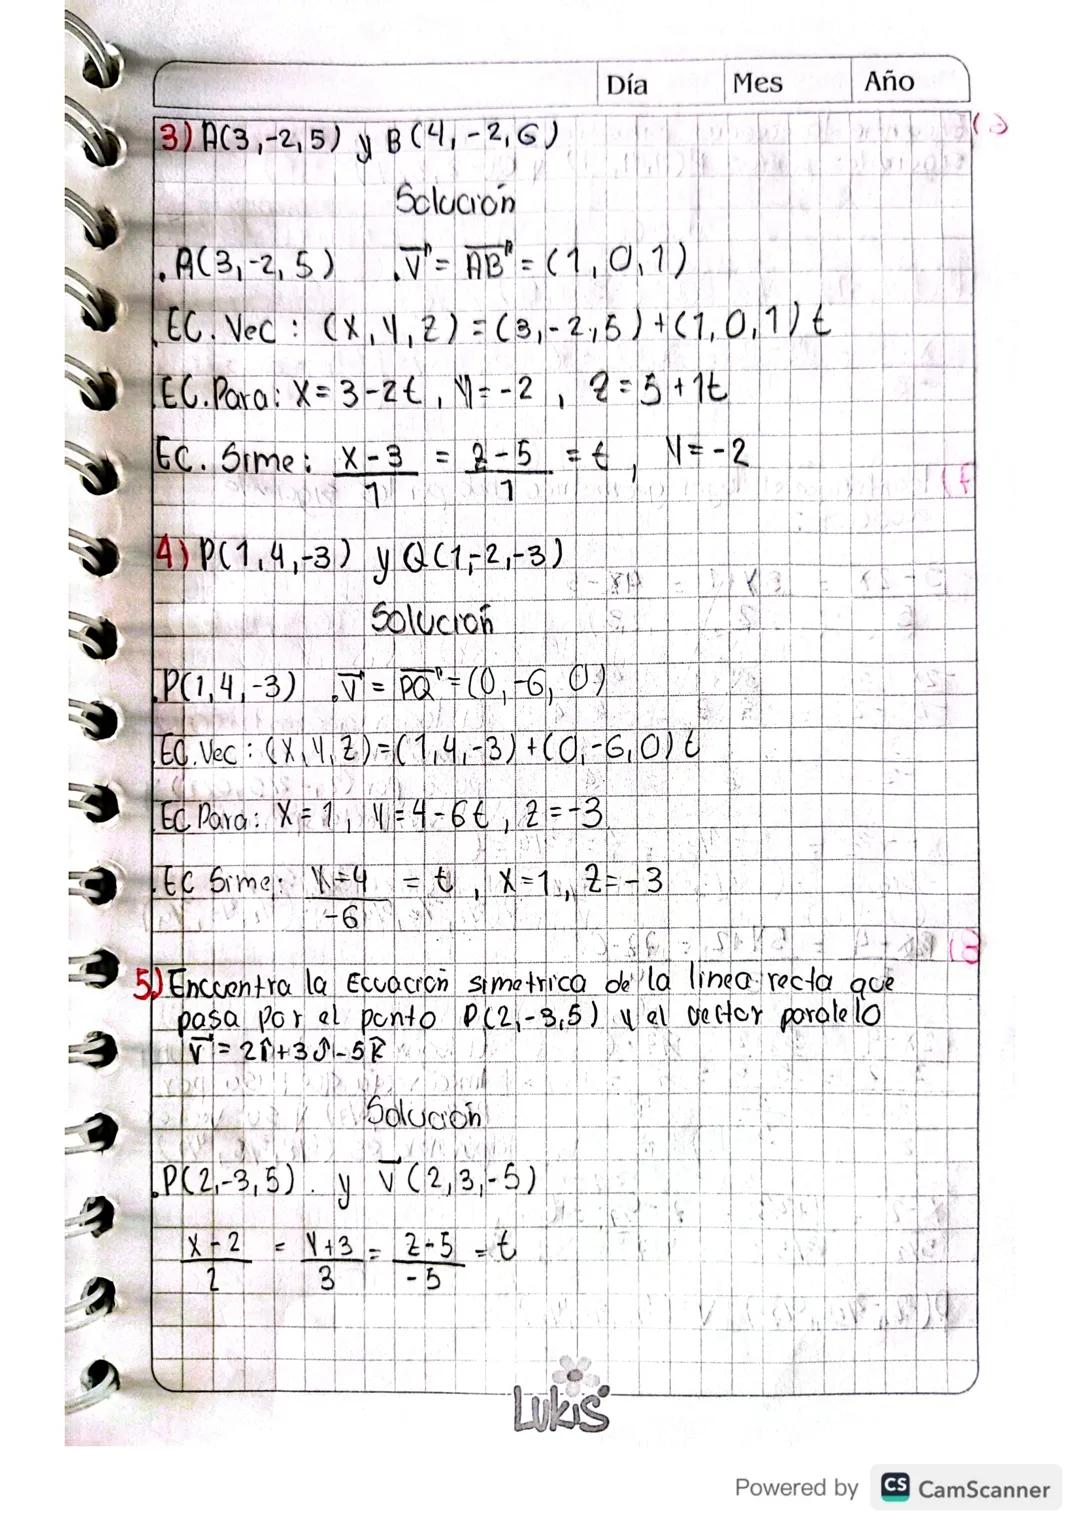 Día Mes Año
3) A(3,-2,5) y B(4,-2,6)
Solución
.A(3,-2,5) .V⃗ = AB⃗ = (1,0,1)
.EC. Vec: (x,y,z)=(3,-2,5)+(1,0,1)t
.EC. Para: X=3-2t, y=-2, z=5+1t
EC. Sime: x-3/1 = z-5/1 = t, y=-2
4) P(1,4,-3) y Q(1,-2,-3)
Solución
.P(1,4,-3) .V⃗ = PQ⃗ = (0,-6,0)
.EC. Vec: (x,y,z)=(1,4,-3)+(0,-6,0)t
.EC Para: X=1, y=4-6t, z=-3
.EC Sime: y-4/-6 = t, X=1, z=-3
5) Enccentra la Eccación simetrica de la linea recta que
pasa por el ponto P(2,-3,5) y el vector paralelo
V⃗ = 2î+3ĵ-5k⃗
Solución
.P(2,-3,5). y V⃗(2,3,-5)
x-2/2 = y+3/3 = z-5/-5 = t
LUKIS
Powered by CS CamScanner